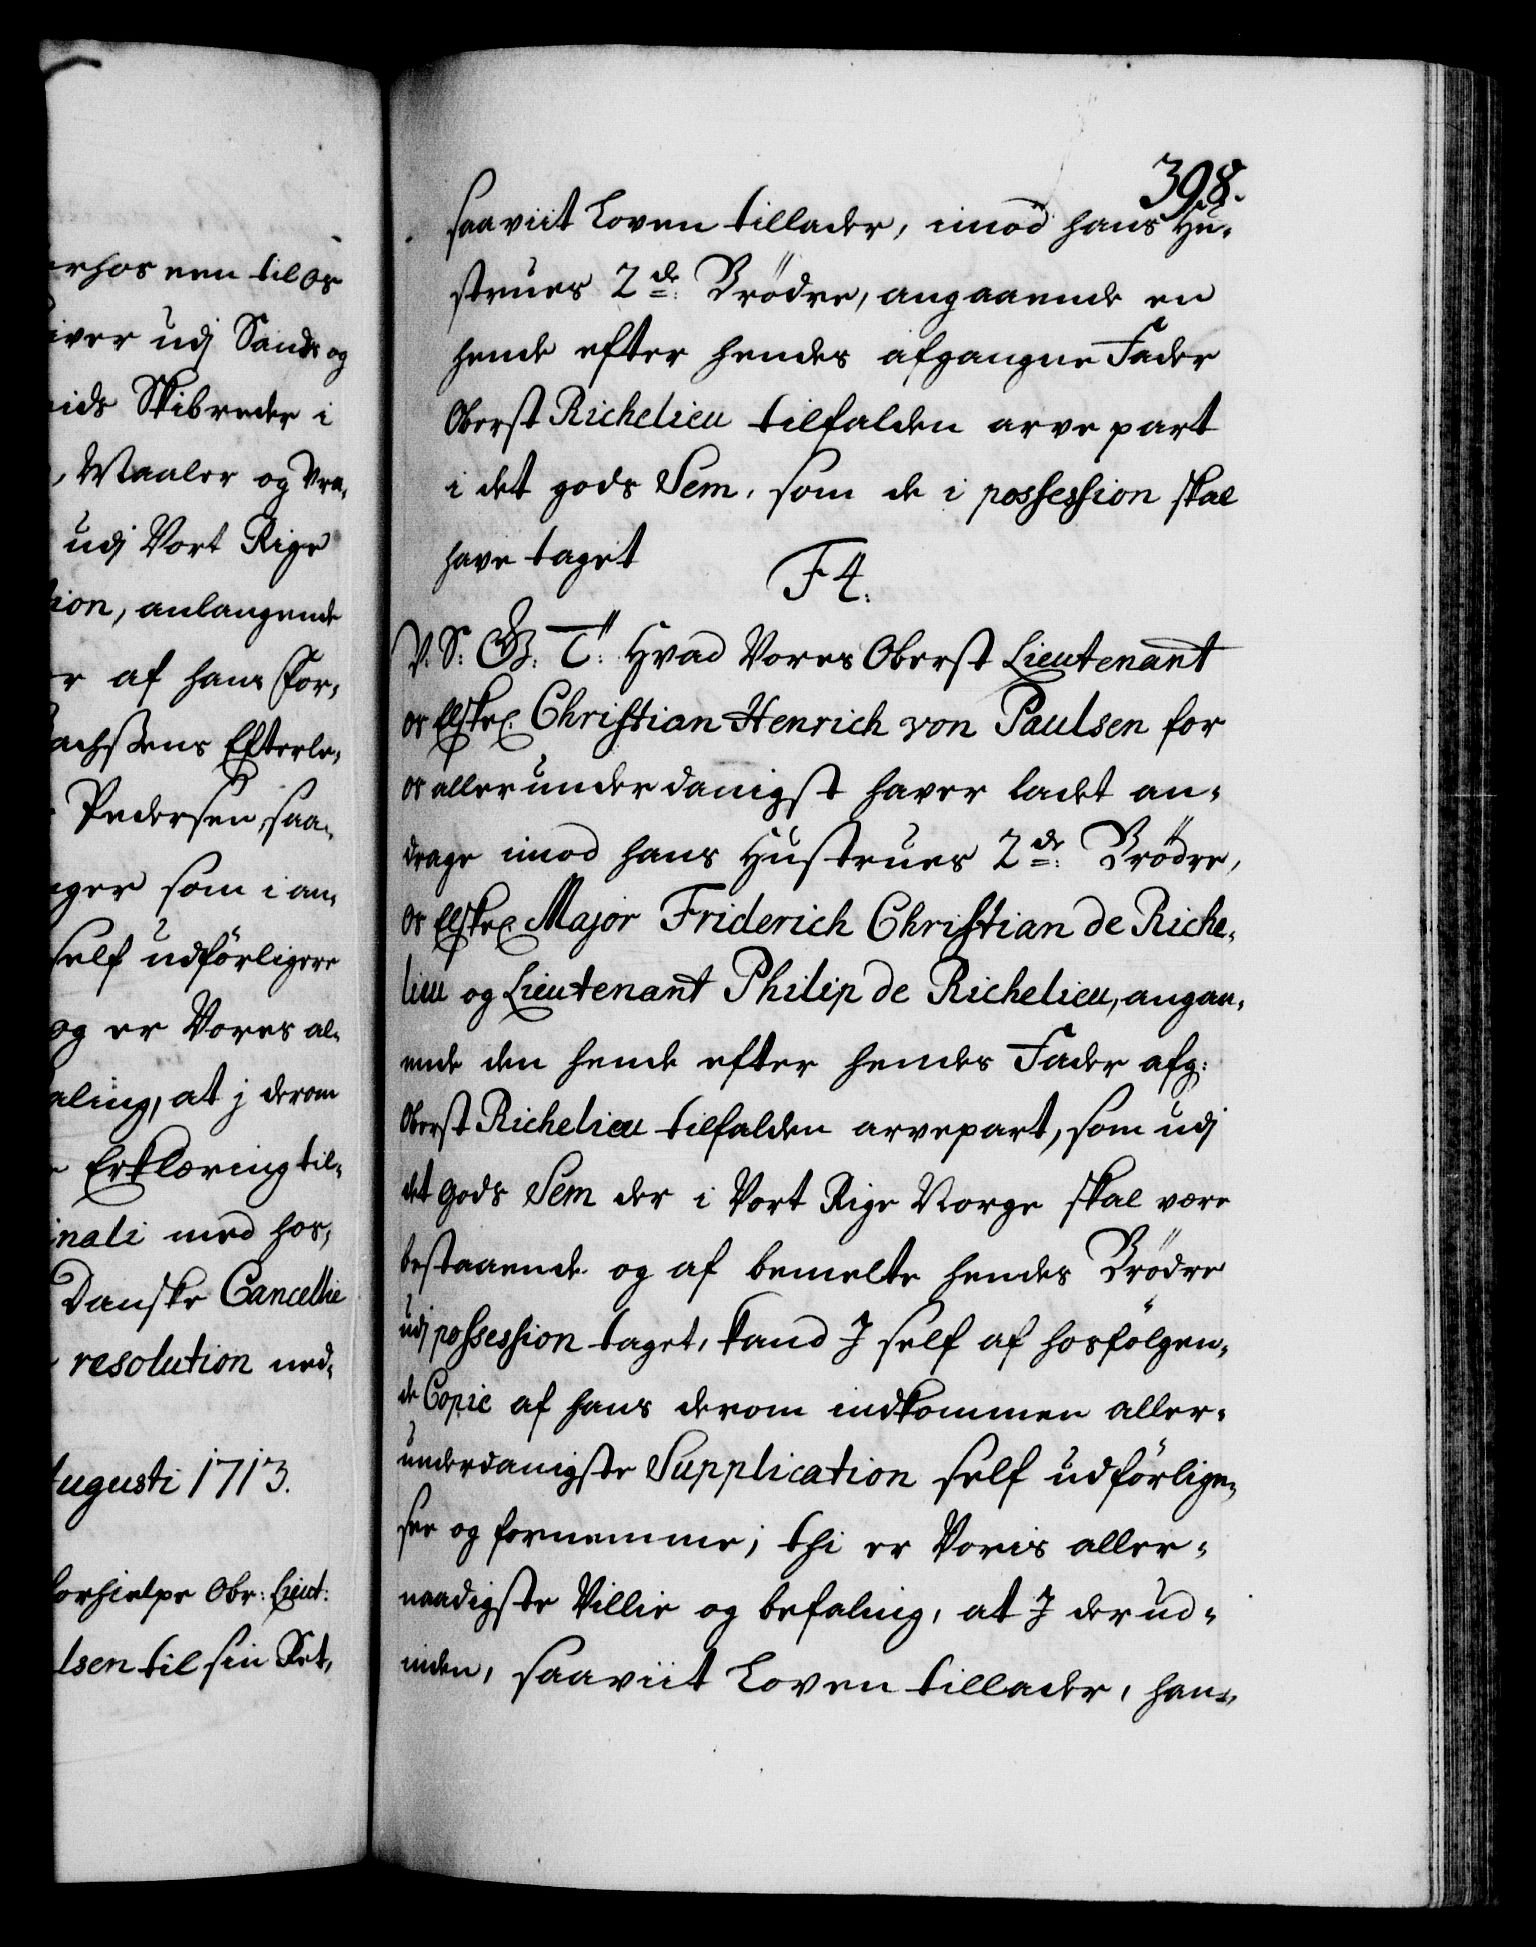 erhos een til os
iver udj Sands og
eids Skibreder i
, Waaler og Vra,
udj Vort Rige
tion, anlangende
er af hans For,
achsens Efterle,
Pedersen, saa,
nger som i an,
self udförligere
og er Vores al,
aling, at j derom
Erklæring til,
inali med hos,
Danske Cancellie
resolution ned,
Augusti 1713.
forhielpe Obr: Lieut:
lsen til sin Ret,
398.
saaviit Loven tillader, imod hans Hu,
strues 2de: Brödre, angaaende en
hende efter hendes afgangne Fader
Oberst Richelieu tilfalden arve part
i det gods Sem, som de i possession skal
have taget
F 4.
V. S: G. T: Hvad Vores Oberst Lieutenant
os Elskel. Christian Henrich von Paulsen for
os allerunderdanigst haver ladet an,
drage imod hans Hustrues 2de: Brödre,
os Elskel. Major Friderich Christian de Riche,
lieu og Lieutenant Philip de Richelieu, angaa,
ende den hende efter hendes Fader afg:
Oberst Richelieu tilfalden arvepart, som udj
det Gods Sem der i Vort Rige Norge skal være
bestaaende og af bemelte hendes Brödre
udj possession taget, kand J self af hosfölgen,
de Copie af hans derom indkommen aller,
underdanigste Supplication self udförlige,
see og fornemme; thi er Voris aller,
naadigste Villie og befaling, at J derud,
inden, saaviit Loven tillader, han,